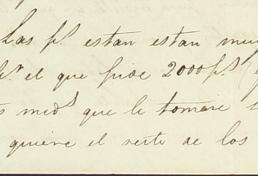 Las p.s estan estan muy
p.r el que pide 2000 p.s
s med.s que le tomare
quiere el resto de los